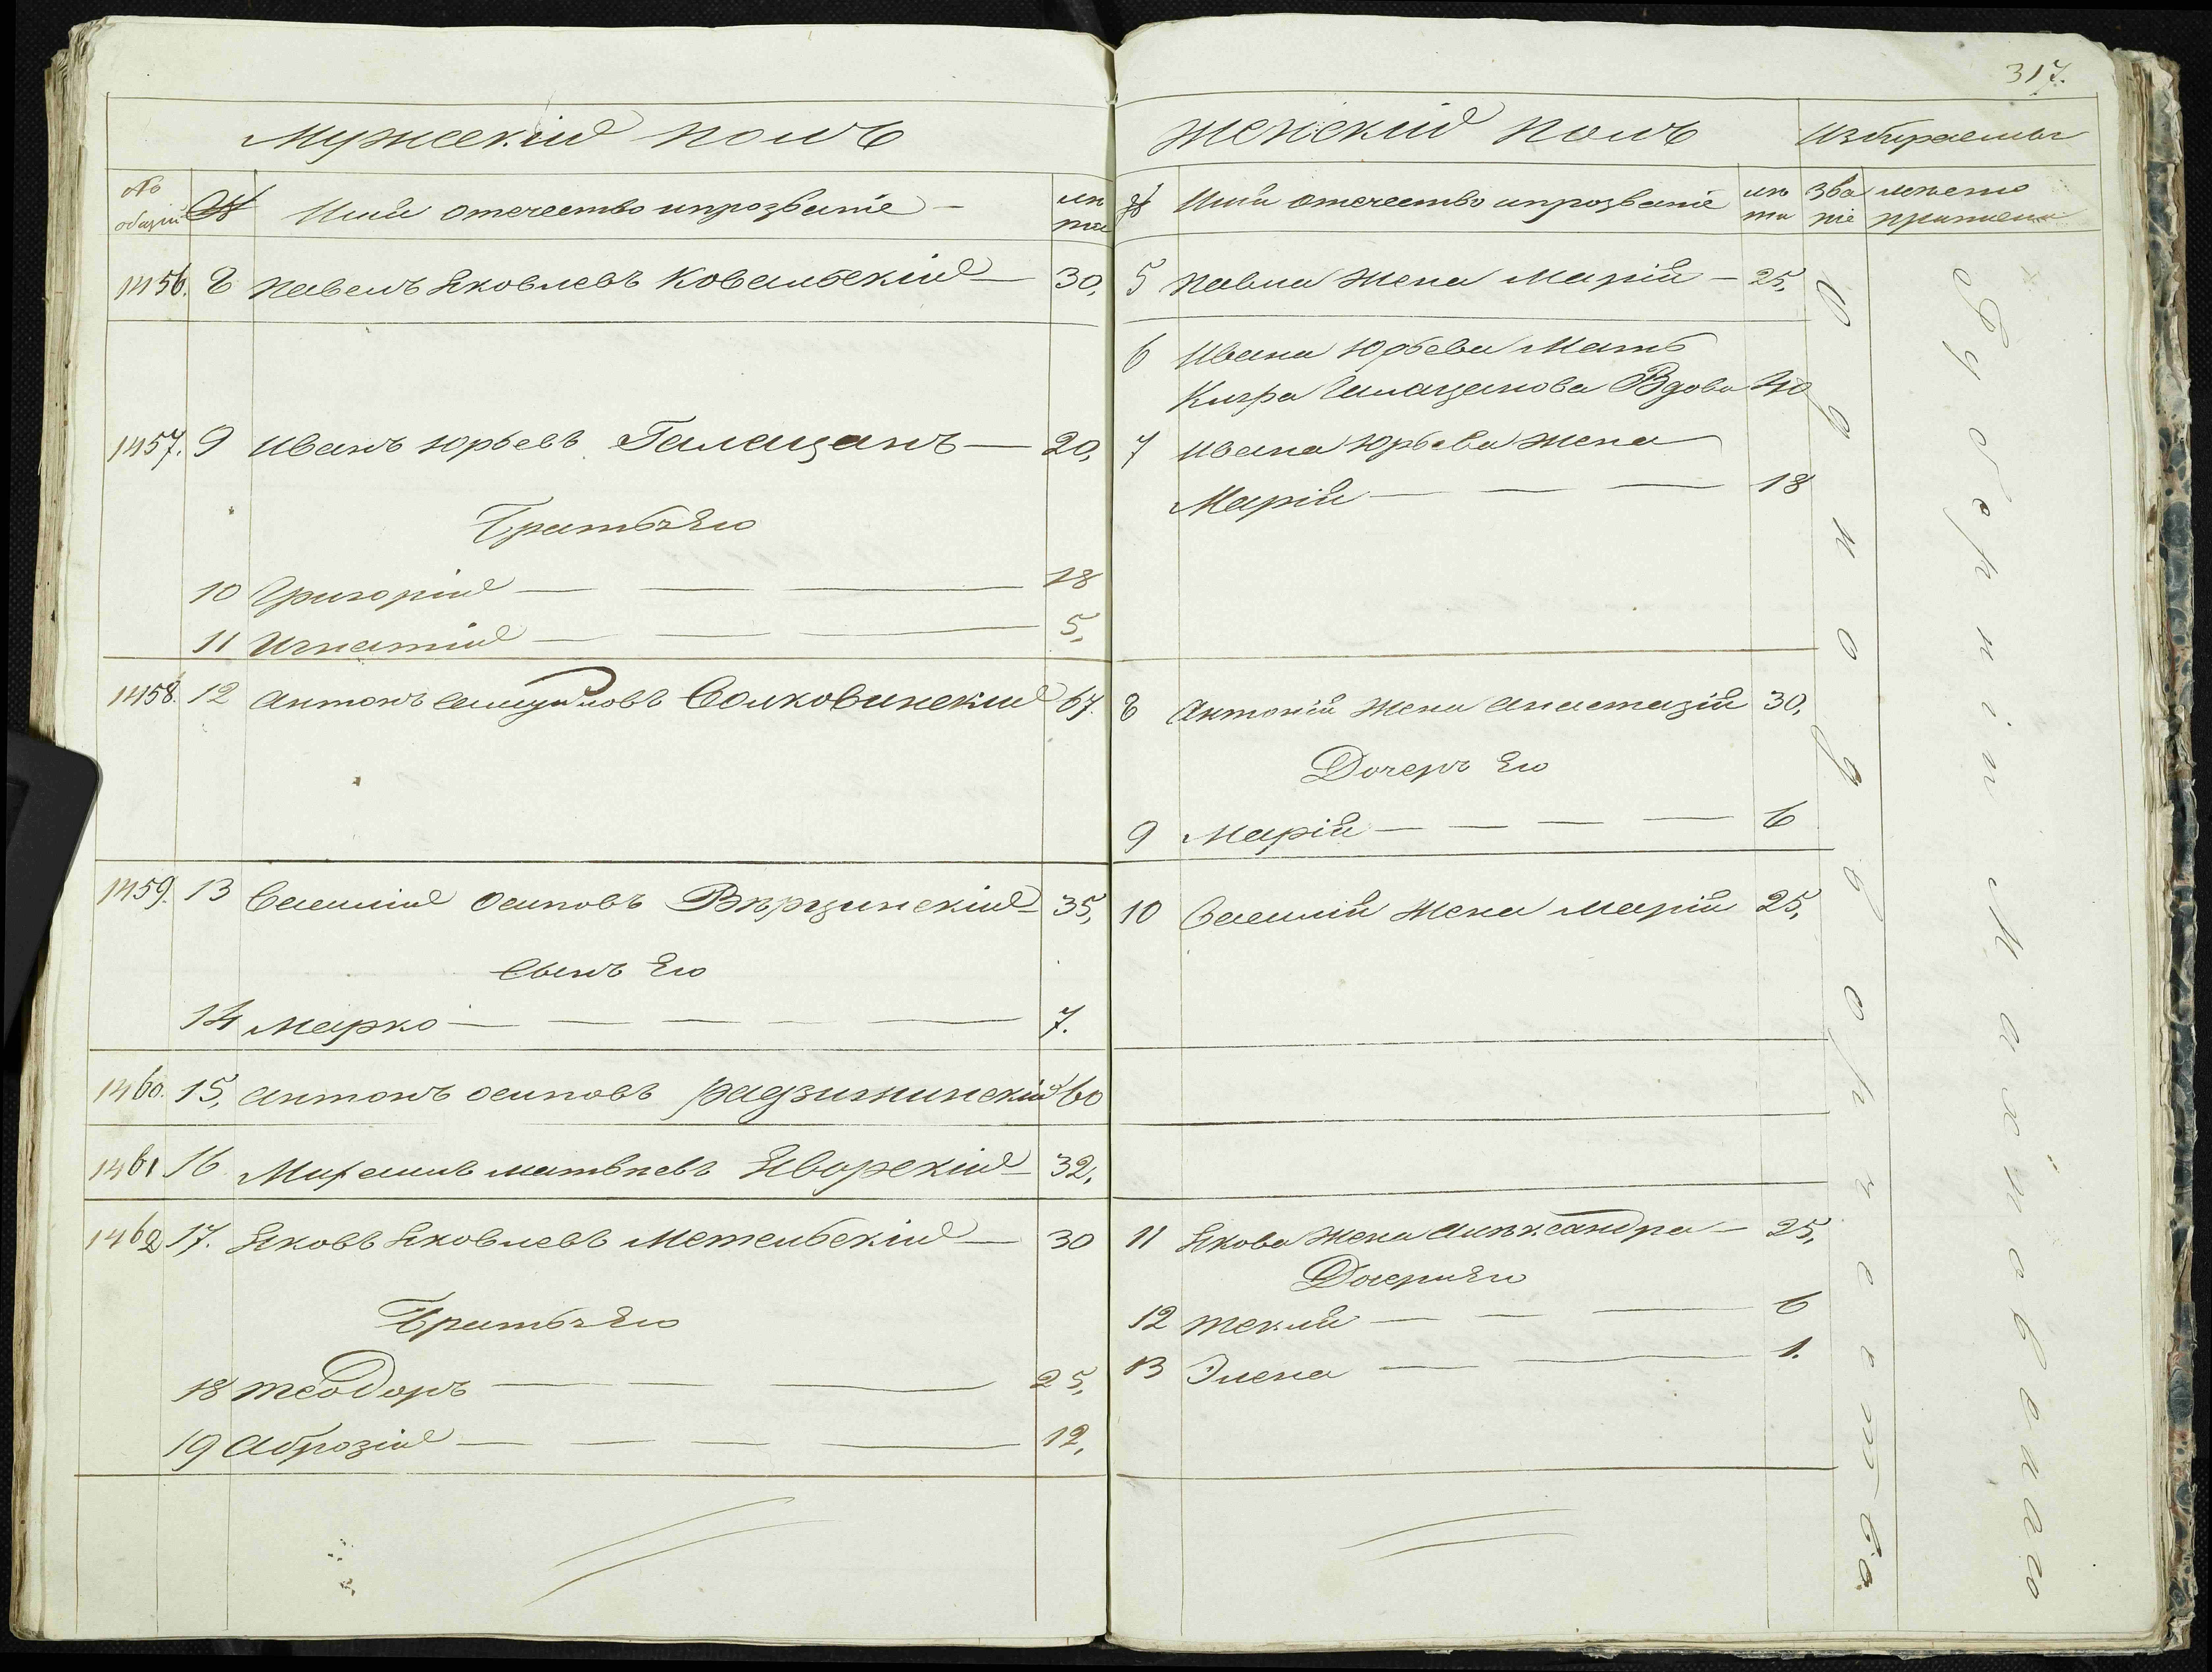 317.
Мужескій полъ
№ общій № Имя отечество и прозваніе лѣта
1456. 8 Павелъ Яковлевъ Ковальскій — 30,
1457. 9 Иванъ Юрьевъ Галацанъ — 20,
Братья Его
10 Григорій — — — 18
11 Игнатій — — — 5,
1458. 12 Антонъ Волковинскій 67.
1459. 13 Василій Осиповъ Вѣрзинскій — 35,
Сынъ Его
14 Марко — — — — — 7.
1460. 15, Антонъ Осиповъ Радзиминскій 60
1461 16 Михаилъ Матвѣевъ Яворскій — 32,
1462 17. Яковъ Яковлевъ Метельскій — 30
Братья Его
18 Теодоръ — — — — 25,
19 Аброзій — — — — 12,
Женскій полъ
Избираемые
№ Имя отечество и прозваніе лѣта Званіе мѣсто
5 Павла Жена Марія — 25,
6 Ивана Юрьева Мать
Кигра Галацанова Вдова 40
7 Ивана Юрьева Жена
Марія — — — 18
8 Антонія Жена Анастазія 30,
Дочерь Его
9 Марія — — — — 6
10 Василія Жена Марія 25,
11 Якова Жена Алѣксандра — 25,
Дочери Его
12 Текля — — — 6
13 Элена — — 1.
Однодворчество
Губерніи